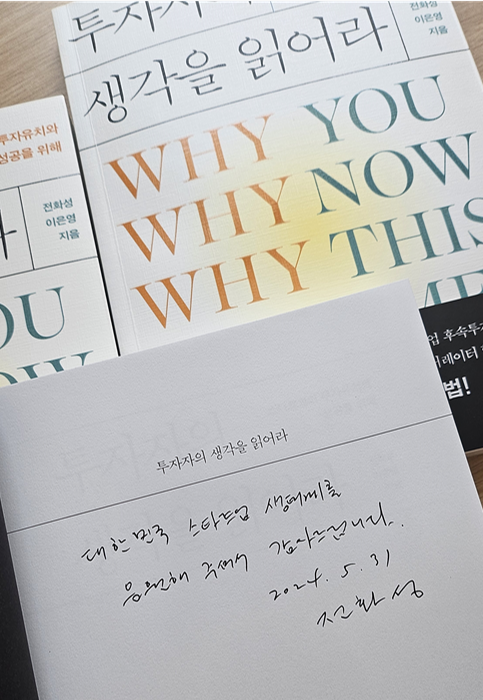 투자자의
생각을 읽어라
전화성
이은영
지음
WHY YOU
WHY NOW
WHY THIS
투자유치와
성공을 위해
전화성
이은영
지음
라
OU
OW
업 후속투
법!
투자자의 생각을 읽어라
대한민국 스타트업 생태계를
응원해 주셔서 감사드립니다.
2024. 5. 31
전화성